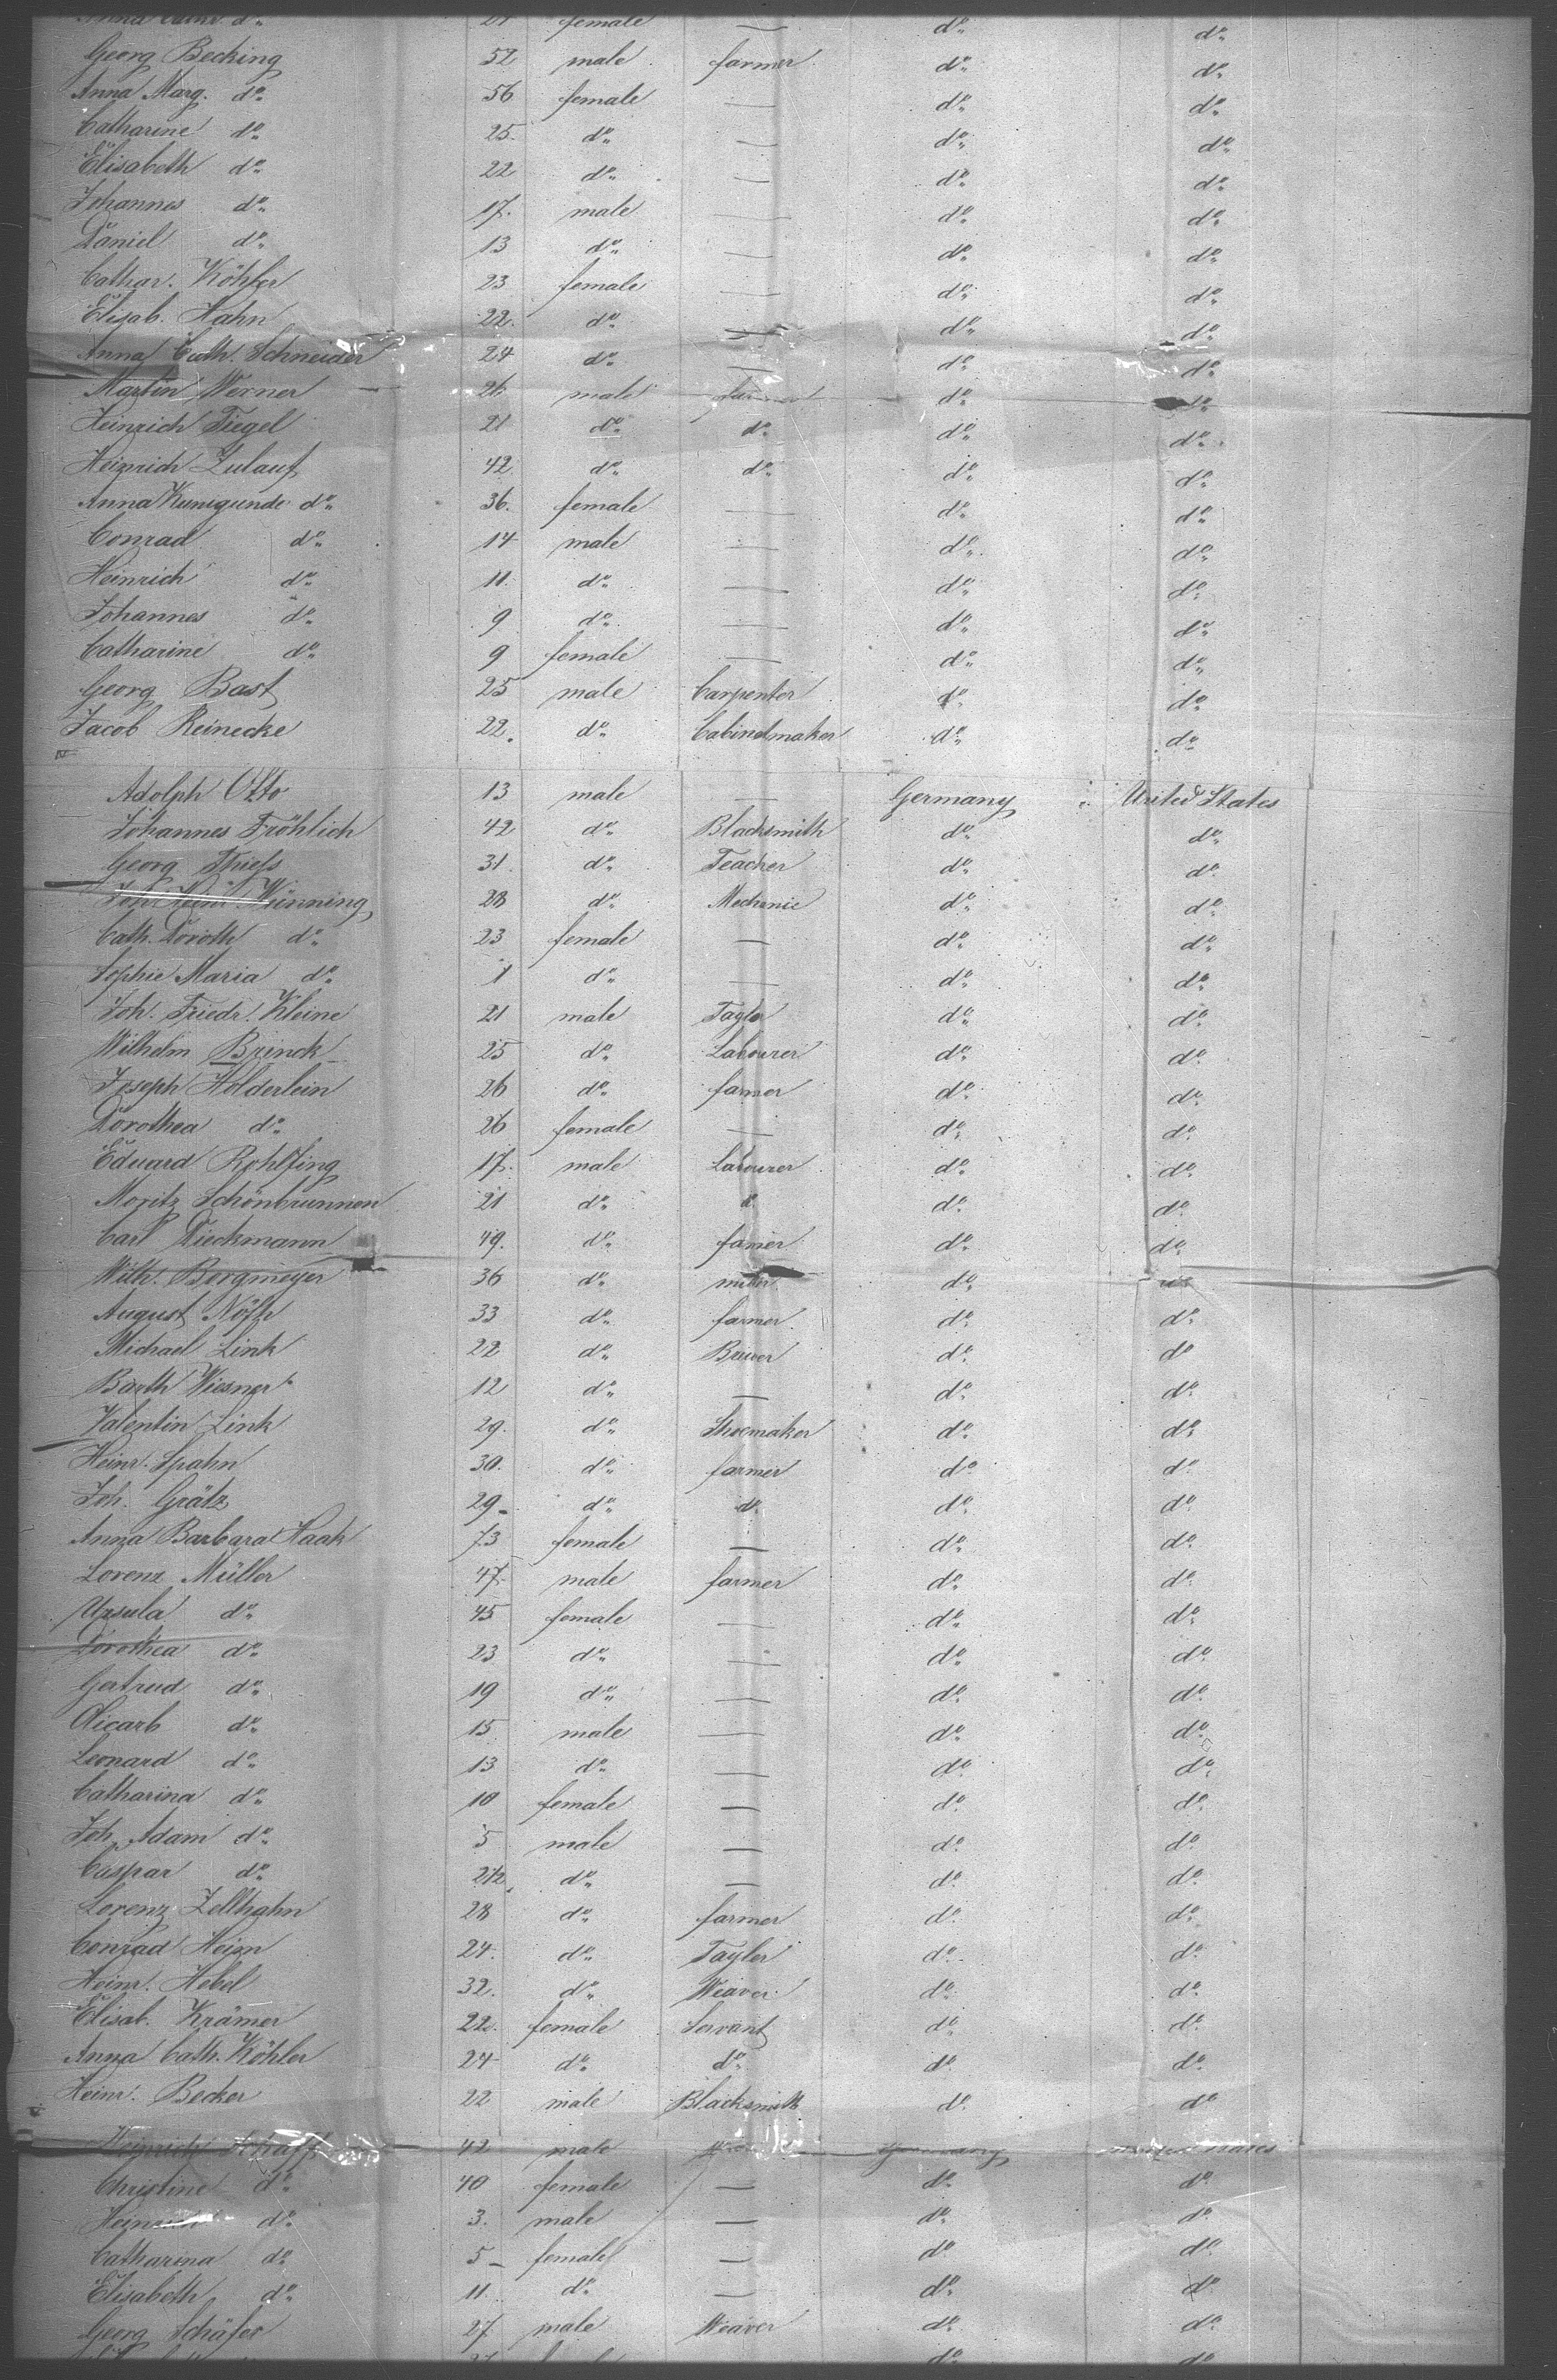 Anna Cathr. do. 21 female — do. do.
Georg Becking 52 male farmer do. do.
Anna Marg. do. 56 female — do. do.
Catharine do. 25. do. — do. do.
Elisabeth do. 22 do. — do. do.
Johannes do. 17. male — do. do.
Daniel do. 13 do. — do. do.
Cathar. Köhler 23 female — do. do.
Elisab. Hahn 22. do. — do. do.
Anna Cath. Schneider 24 do. — do. do.
Martin Werner 26 male farmer do. do.
Heinrich Tiegel 21 do. do. do. do.
Heinrich Zulauf 42. do. do. do. do.
Anna Kunigunde do. 36. female — do. do.
Conrad do. 14 male — do. do.
Heinrich do. 11. do. — do. do.
Johannes do. 9 do. — do. do.
Catharine do. 9 female — do. do.
Georg Bast 25 male Carpenter do. do.
Jacob Reinecke 22. do. Cabinetmaker do. do.
Adolph Otto 13 male — Germany United States
Johannes Fröhlich 42 do. Blacksmith do. do.
Georg Thiess 31. do. Teacher do. do.
Joh. Heinr. Wünning 28 do. Mechanic do. do.
Cath. Doroth do. 23 female — do. do.
Sophie Maria do. 1 do. — do. do.
Joh. Friedr. Kleine 21 male Taylor do. do.
Wilhelm Brinck 25 do. Labourer do. do.
Joseph Holderlein 26 do. farmer do. do.
Dorothea do. 26 female — do. do.
Eduard Rohlfing 17. male Labourer do. do.
Moritz Schönbrunnen 21 do. d. do. do.
Carl Dieckmann 49. do. famer do. do.
Wilh. Bergmeyer 36 do. miller do. do.
August 33 do. farmer do. do.
Michael Link 22 do. Bruver do. do
Barth Wiesner 12 do. — do. do.
Valentin Link 29. do. Shoemaker do. do.
Heinr. Spahn 30. do. farmer do. do.
Joh. Grätz 29 do. do. do. do.
Anna Barbara Haak 73 female — do. do.
Lorenz Müller 47. male farmer do. do.
Ursula do. 45 female — do. do.
Dorothea do. 23 do. — do. do.
Gertrud do. 19 do. — do. do.
Ricarb do. 15 male — do. do.
Leonard do. 13 do. — do. do.
Catharina do. 10 female — do. do.
Joh. Adam do. 5 male — do. do.
Caspar do. 2 1/2 do. — do. do.
Lorenz Zellhahn 28 do. farmer do. do.
Conrad Heim 24. do. Tayler do. do.
Heinr. Hebel 32. do. Weaver do. do.
Elisab. Krämer 22. female Servant do. do.
Anna Cath. Köhler 24 do. do. do. do.
Heinr. Becker 22 male Blacksmith do. do
Heinrich 42 male Germany United States
Christine do. 40 female — do. do.
Heinrich do. 3. male — do. do.
Catharina do. 5 female — do. do.
Elisabeth do. 11. do. — do. do.
Georg Schäfer 27 male Weaver do. do.
do. do.